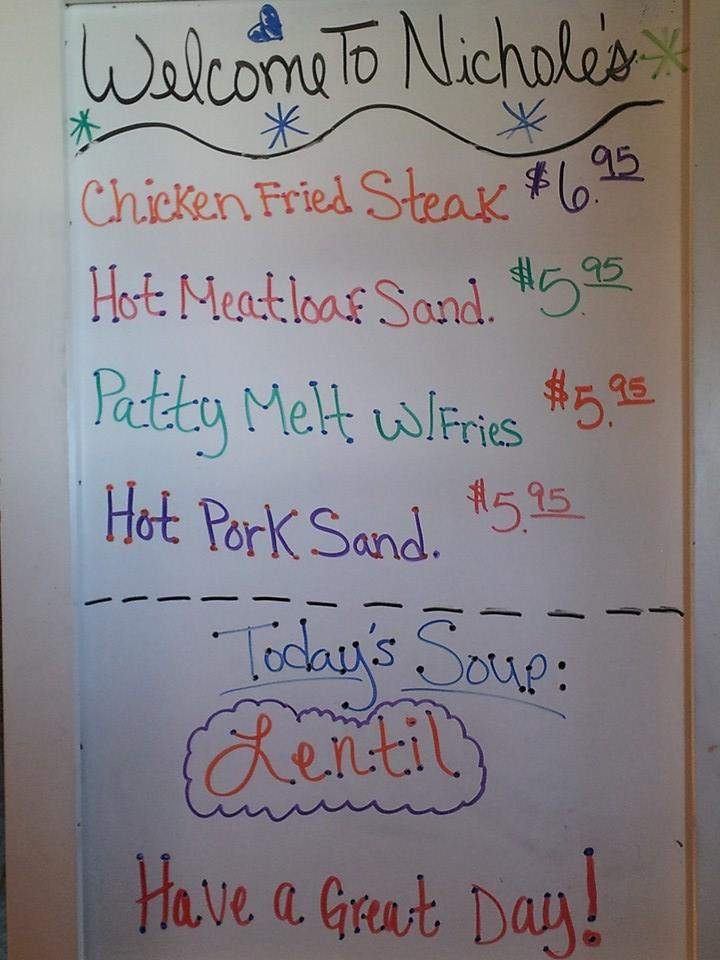 Welcome To Nichole's
Chicken Fried Steak $6.95
Hot Meatloaf Sand. $5.95
Patty Melt W/Fries $5.95
Hot Pork Sand. $5.95
Today's Soup:
Lentil
Have a Great Day!